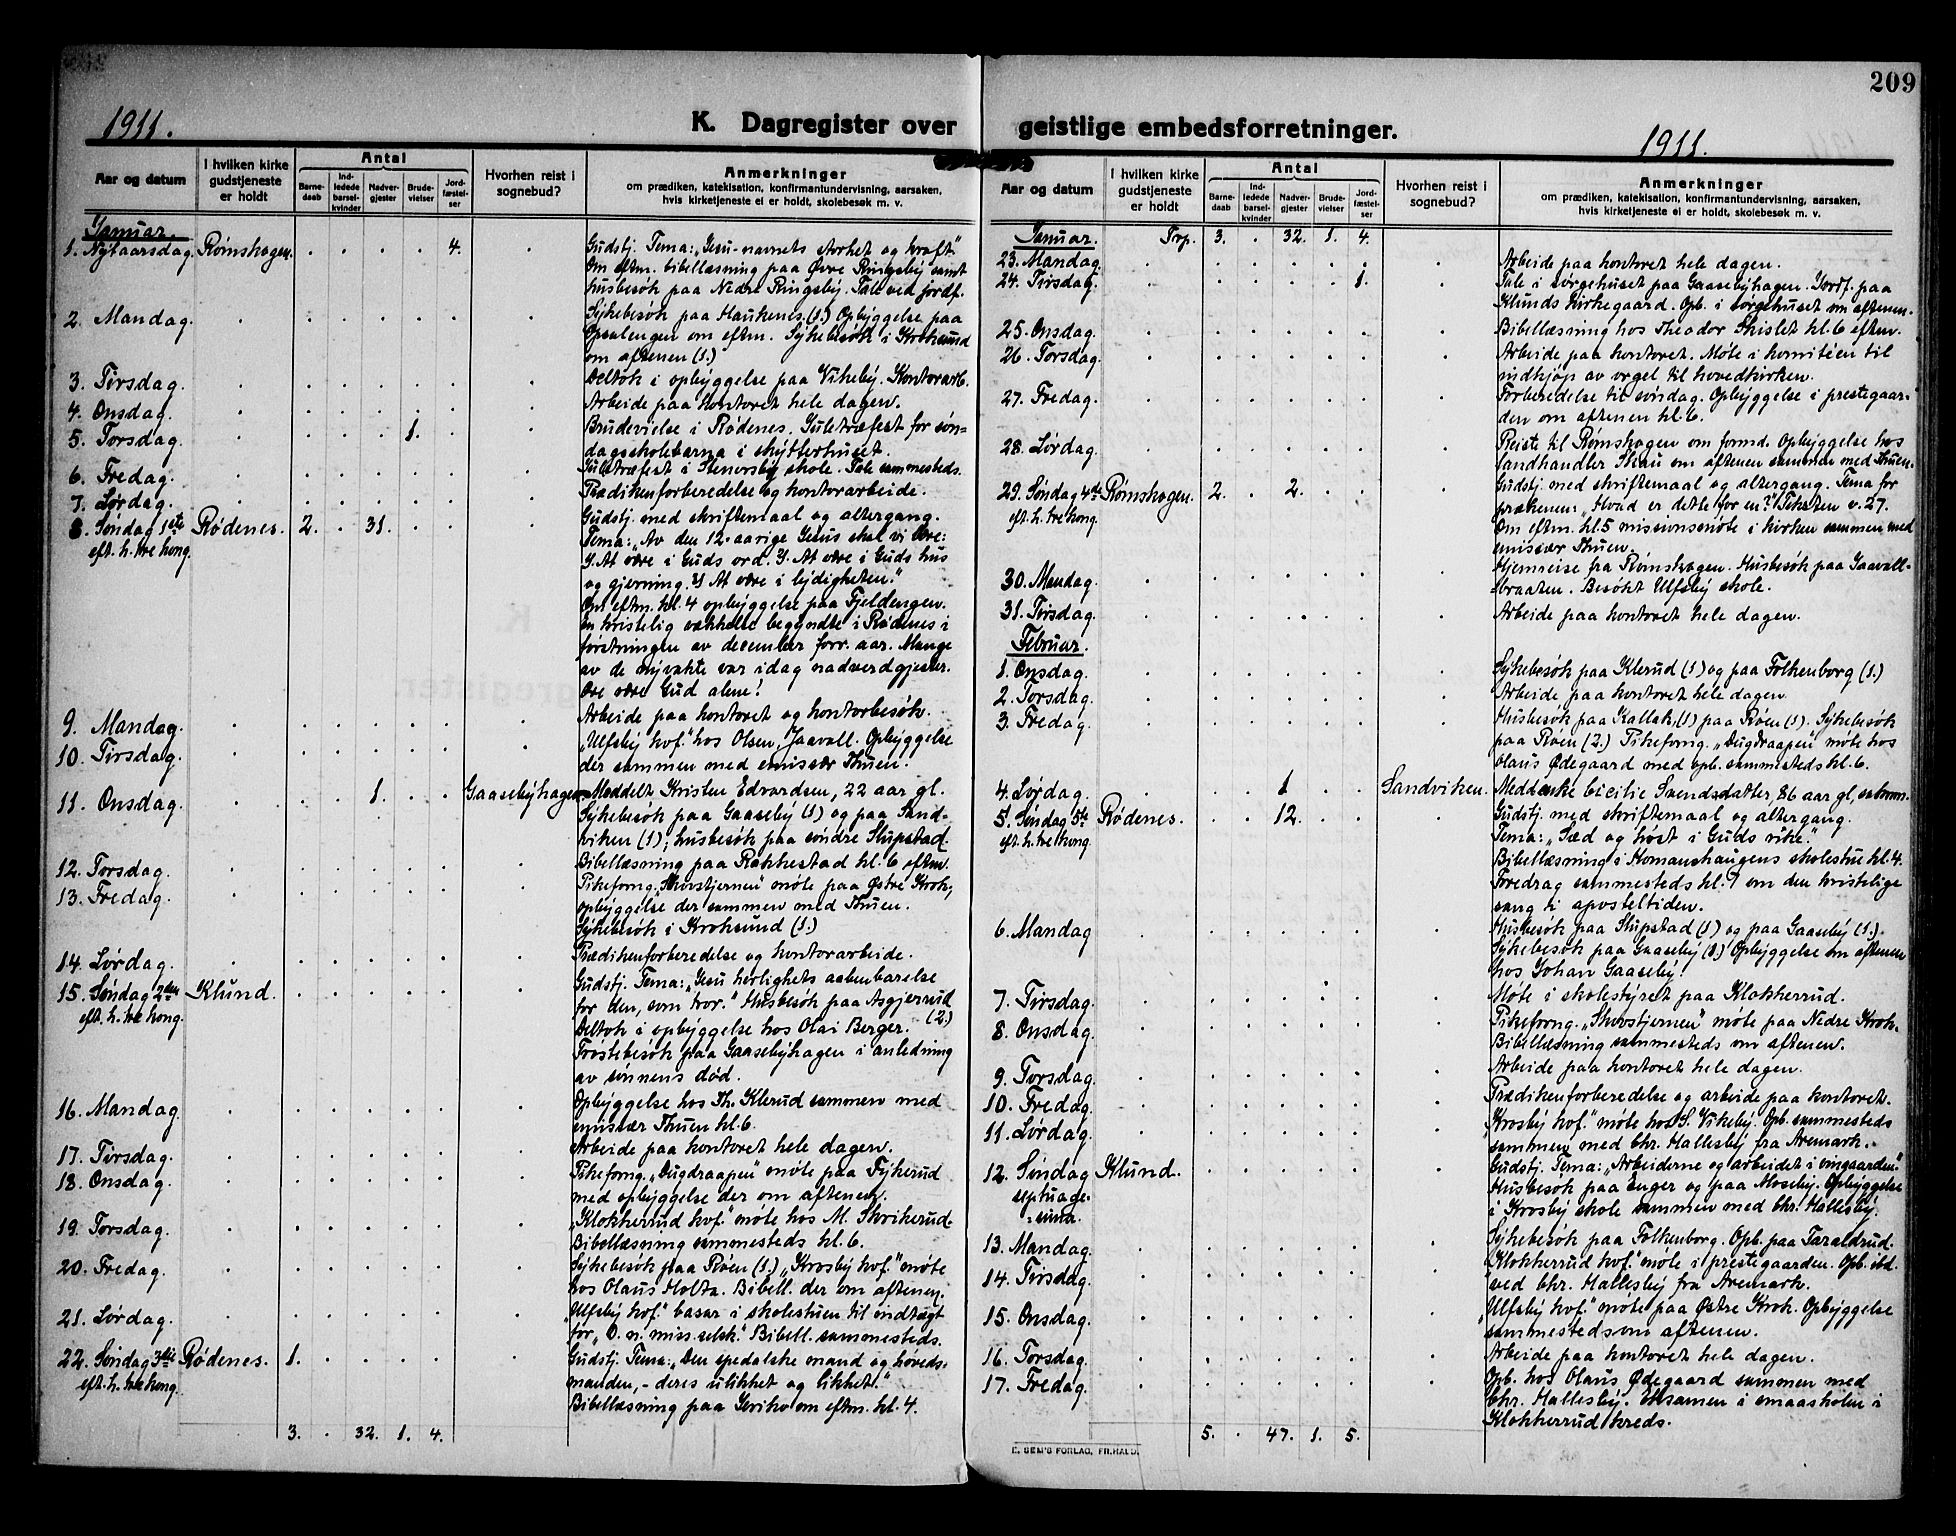 209
1911.
K. Dagregister over geistlige embedsforretninger.
1911.
Aar og datum
I hvilken kirke gudstjeneste er holdt
Antal
Barnedaab
Indledede barselkvinder
Nadvergjester
Brudevielser
Jordfæstelser
Hvorhen reist i sognebud?
Anmerkninger
om prædiken, katekisation, konfirmantundervisning, aarsaken, hvis kirketjeneste ei er holdt, skolebesøk m. v.
Januar.
1. Nytaarsdag. Rømshogen. . . . . 4. Gudstj. Tema: "Jesu-navnets storhet og kraft."
Om eftm. bibellæsning paa Øvre Ringsby samt
husbesøk paa Nedre Ringsby. Tale ved jordf.
2. Mandag. Sykebesøk paa Haukenes (1.) Opbyggelse paa
om eftm. Sykebesøk i Kroksund
om aftenen (1.)
3. Tirsdag. Deltok i opbyggelse paa Vikeby. Kontorarb.
4. Onsdag. Arbeide paa kontoret hele dagen.
5. Torsdag. 1. Brudevielse i Rødenes. Juletræfest for søn-
dagsskolebarna i skytterhuset.
6. Fredag. Juletræfest i Stenersby skole. Tale sammesteds.
7. Lørdag. Prædikenforberedelse og kontorarbeide.
8. Søndag 1ste Rødenes. 2. . 31. . . Gudstj. med skriftemaal og altergang.
eft. h. tre kong. Tema: "Av den 12-aarige Jesus skal vi lære:
1. At være i Guds ord. 2. At være i Guds hus
og gjerning. 3. At være i lydigheten."
Om eftm. kl. 4 opbyggelse paa Fjeldengen.
En kristelig vækkelse begyndte i Rødenes i
førstningen av december forr. aar. Mange
av de nyvakte var idag nadverdgjester.
Ære være Gud alene!
9. Mandag. Arbeide paa kontoret og kontorbesøk.
10. Tirsdag. "Ulfsby kvf." hos Olsen, Jaavall. Opbyggelse
der sammen med emissær Thuen.
11. Onsdag. 1. Gaasebyhagen. Meddelt Kristen Edvardsen, 22 aar gl.
Sykebesøk paa Gaaseby (1) og paa Sand-
viken (1); husbesøk paa søndre Slupstad.
12. Torsdag. Bibellæsning paa Rakkestad kl. 6 eftm.
13. Fredag. Pikeforng. "Skovstjernen" møte paa Østre Krok,
opbyggelse der sammen med Thuen.
Sykebesøk i Kroksund (1.)
14. Lørdag. Prædikenforberedelse og kontorarbeide.
15. Søndag 2den Klund. Gudstj. Tema: "Jesu herlighets aabenbarelse
eft. h. tre kong. for den, som tror." Husbesøk paa Asgjerrud
(2.)
Deltok i opbyggelse hos Olai Berger.
Trøstebesøk paa Gaasebyhagen i anledning
av sønnens død.
16. Mandag. Opbyggelse hos Th. Klerud sammen med
emissær Thuen kl. 6.
17. Tirsdag. Arbeide paa kontoret hele dagen.
18. Onsdag. Pikeforng. "Dugdraapen" møte paa Fykerud
med opbyggelse der om aftenen.
19. Torsdag. "Klokkerrud kvf." møte hos M. Skrikerud.
Bibellæsning sammesteds kl. 6.
20. Fredag. Sykebesøk paa Røen (1.) "Krosby kvf." møte
hos Olaus Holta. Bibell. der om aftenen.
21. Lørdag. "Ulfsby kvf." basar i skolestuen til indtægt
for "D. n. miss. selsk." Bibell. sammesteds.
22. Søndag 3die Rødenes. 1. Gudstj. Tema: "Den spedalske mand og høveds-
eft. h. tre kong. manden, - deres ulikhet og likhet."
Bibellæsning paa Jeriko om eftm. kl. 4.
3. . 32. 1. 4.
Aar og datum
I hvilken kirke gudstjeneste er holdt
Antal
Barnedaab
Indledede barselkvinder
Nadvergjester
Brudevielser
Jordfæstelser
Hvorhen reist i sognebud?
Anmerkninger
om prædiken, katekisation, konfirmantundervisning, aarsaken, hvis kirketjeneste ei er holdt, skolebesøk m. v.
Januar. Trp. 3. . 32. 1. 4.
23. Mandag. Arbeide paa kontoret hele dagen.
24. Tirsdag. 1. Tale i sørgehuset paa Gaasebyhagen. Jordf. paa
Klunds kirkegaard. Opb. i sørgehuset om aftenen.
25. Onsdag. Bibellæsning hos Theodor Skislet kl. 6 eftm.
26. Torsdag. Arbeide paa kontoret. Møte i komitéen til
indkjøp av orgel til hovedkirken.
27. Fredag. Forberedelse til søndag. Opbyggelse i prestegaar-
den om aftenen kl. 6.
28. Lørdag. Reiste til Rømshogen om formd. Opbyggelse hos
landhandler Skau om aftenen sammen med Thuen.
29. Søndag 4de Rømshogen. 2. . 2. . . Gudstj. med skriftemaal og altergang. Tema for
eft. h. tre kong. prækenen: "Hvad er dette for en?" Teksten v. 27.
Om eftm. kl. 5 missionsmøte i kirken sammen med
emissær Thuen.
30. Mandag. Hjemreise fra Rømshogen. Husbesøk paa Gaavall-
braaten. Besøkt Ulfsby skole.
31. Tirsdag. Arbeide paa kontoret hele dagen.
Februar.
1. Onsdag. Sykebesøk paa Klerud (1) og paa Folkenborg (1.)
2. Torsdag. Arbeide paa kontoret hele dagen.
3. Fredag. Husbesøk paa Kallak (1) paa Røen (1). Sykebesøk
paa Røen (2.) Pikeforng. "Dugdraapen" møte hos
Olaus Ødegaard med opb. sammesteds kl. 6.
4. Lørdag. 1. Sandviken. Medd. enke Cicilie Svendsdatter, 86 aar gl,
5. Søndag 5te Rødenes. . . 12. . . Gudstj. med skriftemaal og altergang.
eft. h. tre kong. Tema: "Sæd og høst i Guds rike."
Bibellæsning i Komanshaugens skolestue kl. 4.
Foredrag sammesteds kl. 7 om den kristelige
sang ti aposteltiden.
6. Mandag Husbesøk paa Slupstad (1) og paa Gaaseby (1.).
Sykebesøk paa Gaaseby (1.) Opbyggelse om aftenen
hos Johan Gaaseby.
7. Tirsdag. Møte i skolestyret paa Klokkerrud.
8. Onsdag. Pikeforng. "Skovstjernen" møte paa Nedre Krok.
Bibellæsning sammesteds om aftenen.
9. Torsdag. Arbeide paa kontoret hele dagen.
10. Fredag. Prædikenforberedelse og arbeide paa kontoret.
11. Lørdag. "Krosby kvf." møte hos S. Vikeby. Opb. sammesteds
sammen med Chr. Hallesby fra Aremark.
12. Søndag Klund. Gudstj. Tema: "Arbeiderne og arbeidet i vingaarden."
septuage- Husbesøk paa Enger og paa Moseby. Opbyggelse
sima. i Krosby skole sammen med Chr. Hallesby.
13. Mandag. Sykebesøk paa Folkenborg. Opb. paa Taraldrud.
14. Tirsdag. "Klokkerrud kvf." møte i prestegaarden. Opb. ibd.
ved Chr. Hallesby fra Aremark.
15. Onsdag. "Ulfsby kvf." møte paa Østre Krok. Opbyggelse
sammesteds om aftenen.
16. Torsdag. Arbeide paa kontoret hele dagen.
17. Fredag. Opb. hos Olaus Ødegaard sammen med
Chr. Hallesby. Eksamen i smaaskolen i
Klokkerrud kreds.
5. . 47. 1. 5.
E. SEM'S FORLAG, FR.HALD.